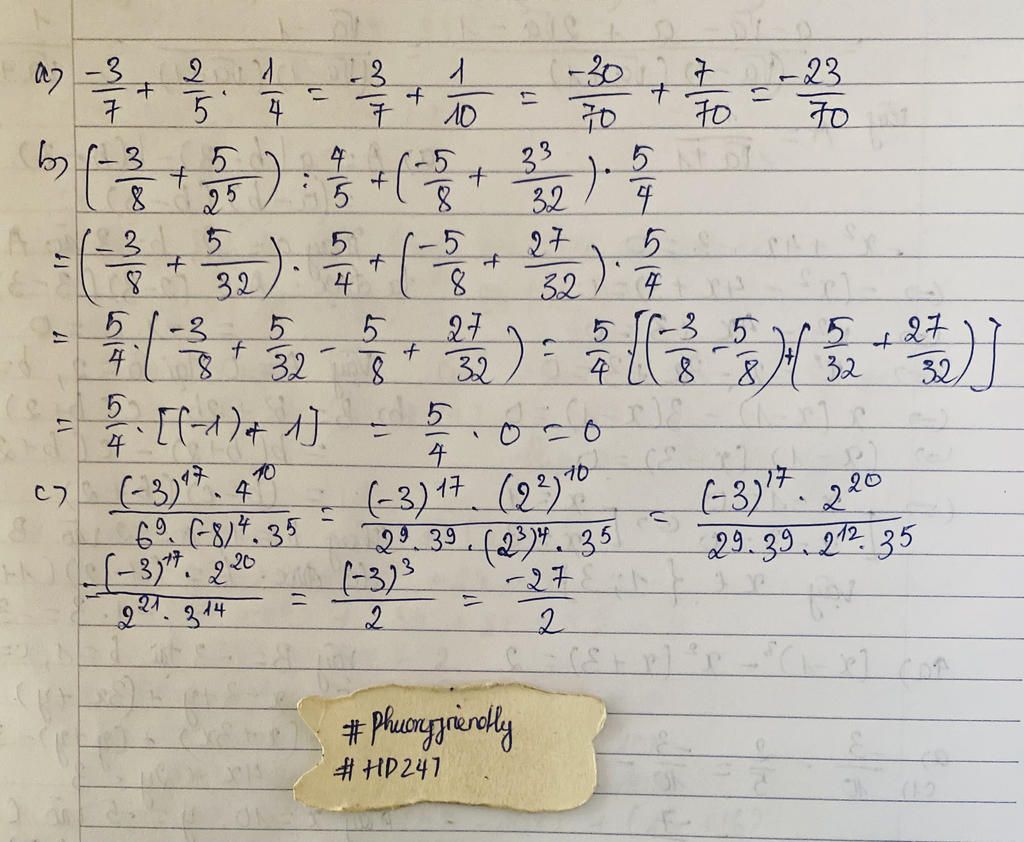 a) -3/7 + 2/5 · 1/4 = -3/7 + 1/10 = -30/70 + 7/70 = -23/70
b) (-3/8 + 5/2⁵) : 4/5 + (-5/8 + 3³/32) · 5/4
= (-3/8 + 5/32) · 5/4 + (-5/8 + 27/32) · 5/4
= 5/4 · (-3/8 + 5/32 - 5/8 + 27/32) = 5/4 · [(-3/8 - 5/8) + (5/32 + 27/32)]
= 5/4 · [(-1) + 1] = 5/4 · 0 = 0
c) (-3)¹⁷ · 4¹⁰ / 6⁹ · (-8)⁴ · 3⁵ = (-3)¹⁷ · (2²)¹⁰ / 2⁹ · 3⁹ · (2³)⁴ · 3⁵ = (-3)¹⁷ · 2²⁰ / 2⁹ · 3⁹ · 2¹² · 3⁵
= (-3)¹⁷ · 2²⁰ / 2²¹ · 3¹⁴ = (-3)³ / 2 = -27/2
# HD247